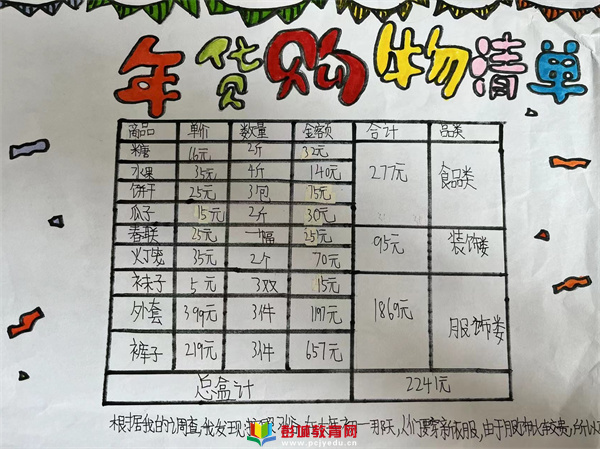 年货购物清单
商品 单价 数量 金额 合计 品类
糖 16元 2斤 32元 277元 食品类
水果 35元 4斤 140元
饼干 25元 3包 75元
瓜子 15元 2斤 30元
春联 25元 一幅 25元 95元 装饰
灯笼 35元 2个 70元
袜子 5元 3双 15元 1869元 服饰
外套 399元 3件 1197元
裤子 219元 3件 657元
总 计 2241元
根据我的 调查,我发现 人们要穿新衣服,由于
彭城教育网
www.pcjyedu.cn